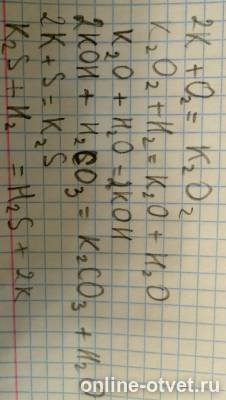 2K + O₂ = K₂O₂
K₂O₂ + H₂ = K₂O + H₂O
K₂O + H₂O = 2KOH
2KOH + H₂CO₃ = K₂CO₃ + H₂O
2K + S = K₂S
K₂S + H₂ = H₂S + 2K
online-otvet.ru